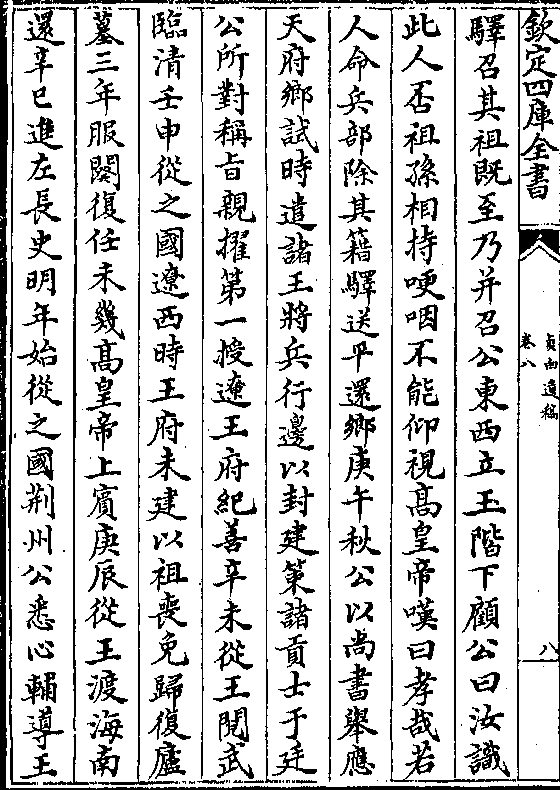 欽定四庫全書
貞白遺稿
卷八
八
驛召其祖既至乃并召公東西立玉階下顧公曰汝識
此人否祖孫相持哽咽不能仰視髙皇帝嘆曰孝哉若
人命兵部除其籍驛送平還鄉庚午秋公以尚書舉應
天府鄉試時遣諸王將兵行邊以封建策諸貢士于廷
公所對稱旨親擢第一授遼王府紀善辛未從王閲武
臨清壬申從之國遼西時王府未建以祖喪免歸復廬
墓三年服闋復任未幾髙皇帝上賓庚辰從王渡海南
還辛巳進左長史明年始從之國荆州公悉心輔導王